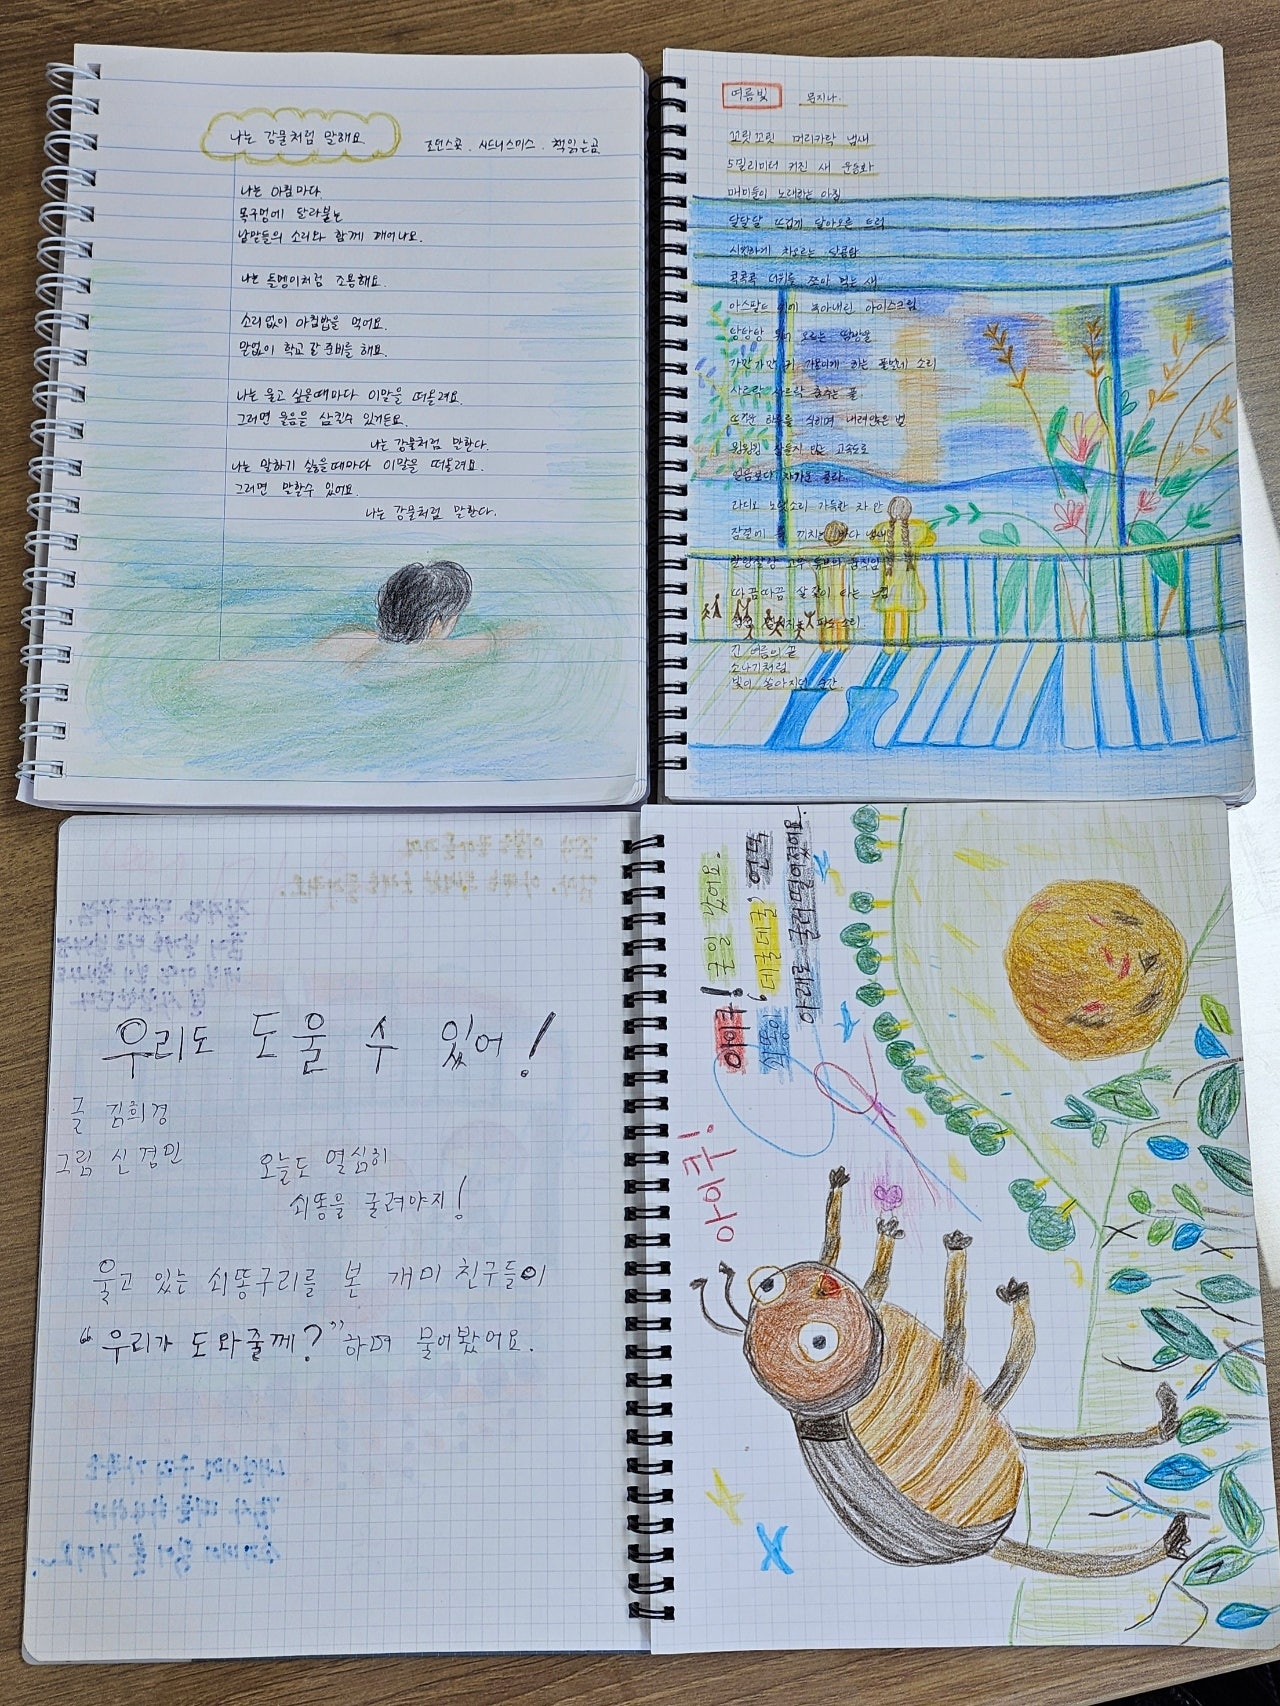 나는 강물처럼 말해요
조던스콧. 시드니스미스. 책읽는곰
나는 아침마다
목구멍에 달라붙는
낱말들의 소리와 함께 깨어나요.
나는 돌멩이처럼 조용해요.
소리없이 아침밥을 먹어요.
말없이 학교 갈 준비를 해요.
나는 울고 싶을때마다 이말을 떠올려요.
그러면 울음을 삼킬수 있거든요.
나는 강물처럼 말한다.
나는 말하기 싫을때마다 이말을 떠올려요.
그러면 말할수 있어요.
나는 강물처럼 말한다.
여름빛 문지나.
꼬릿꼬릿 머리카락 냄새
5밀리미터 커진 새 운동화
매미들이 노래하는 아침
달달달 뜨겁게 달아오른 트럭
시원하게 차오르는 달콤함
콕콕콕 더위를 쪼아 먹는 새
아스팔트 위에 녹아내린 아이스크림
탕탕탕 튀어 오르는 땀방울
귀 간질이게 하는 풀벌레 소리
사르락 사르락 춤추는 풀
뜨거운 하루를 식히며 내려앉은 빛
윙윙윙 잠들지 않는 고속도로
얼음보다 차가운 콜라
라디오 노랫소리 가득한 차 안
잠결에 바다 냄새
따끔따끔 살갗이 타는 느낌
파도 소리
긴 여름의 끝
소나기처럼
빛이 쏟아지던 순간.
우리도 도울 수 있어!
글 김희경
그림 신경민
오늘도 열심히
쇠똥을 굴려야지!
울고 있는 쇠똥구리를 본 개미 친구들이
“우리가 도와줄께?” 하며 물어봤어요.
아이쿠! 큰일 났어요.
쇠똥이 '데굴데굴' 언덕
아래로 굴러 떨어졌어요.
아이쿠!